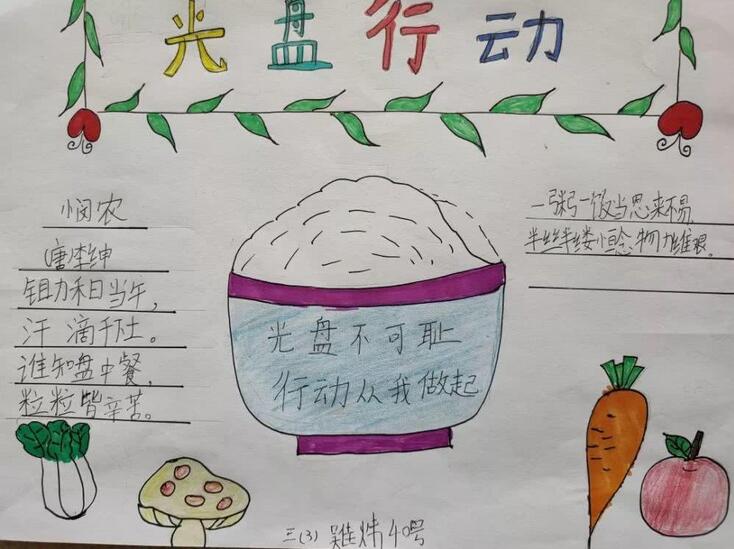 光盘行动
悯农
唐李绅
锄禾日当午,
汗滴禾下土。
谁知盘中餐,
粒粒皆辛苦。
光盘不可耻
行动从我做起
一粥一饭当思来不易,
半丝半缕恒念物力维艰。
三(3) 40号